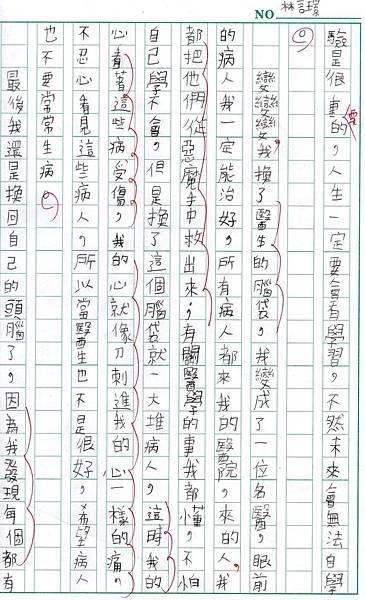 NO
驗是很重要的，人生一定要會有學習，不然未來會無法自學
。
變變變我換了醫生的腦袋，我變成了一位名醫，眼前
的病人我一定能治好，所有病人都來我的醫院，來的人，我
都把他們從惡魔手中救出來，有關醫學的事我都懂，不怕
自己學不會，但是換了這個腦袋就一大堆病人，這時我的
心看著這些病受傷，我的心就像刀刺進我的心一樣的痛。
不忍心看見這些病人，所以當醫生也不是很好，希望病人
也不要常常生病。
最後我還是換回自己的頭腦了，因為我發現每個都有